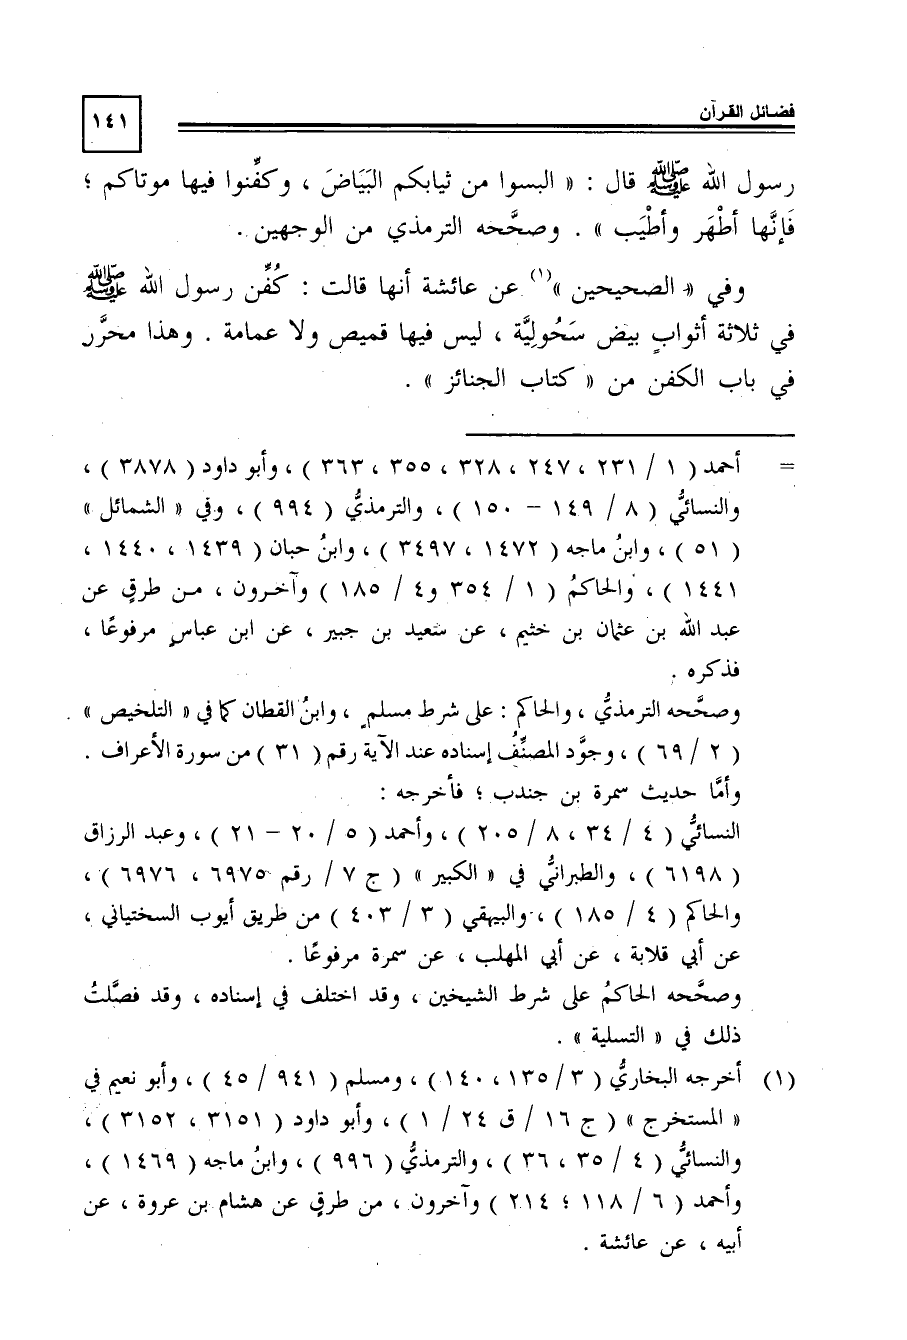 فضائل القرآن
١٤١
رسول الله ﷺ قال : « البسوا من ثيابكم البَيَاضَ ، وكفِّنوا فيها موتاكم ؛
فَإنَّها أطْهَر وأطْيَب » . وصحَّحه الترمذي من الوجهين .
وفي « الصحيحين »(١) عن عائشة أنها قالت : كُفِّن رسول الله ﷺ
في ثلاثة أثوابٍ بيض سَحُولِيَّة ، ليس فيها قميص ولا عمامة . وهذا محرَّر
في باب الكفن من « كتاب الجنائز » .
= أحمد ( ١ / ٢٣١ ، ٢٤٧ ، ٣٢٨ ، ٣٥٥ ، ٣٦٣ ) ، وأبو داود ( ٣٨٧٨ ) ،
والنسائيُّ ( ٨ / ١٤٩ – ١٥٠ ) ، والترمذيُّ ( ٩٩٤ ) ، وفي « الشمائل »
( ٥١ ) ، وابنُ ماجه ( ١٤٧٢ ، ٣٤٩٧ ) ، وابنُ حبان ( ١٤٣٩ ، ١٤٤٠ ،
١٤٤١ ) ، والحاكمُ ( ١ / ٣٥٤ و٤ / ١٨٥ ) وآخرون ، من طرقٍ عن
عبد الله بن عثمان بن خثيم ، عن سعيد بن جبير ، عن ابن عباسٍ مرفوعًا ،
فذكره .
وصحَّحه الترمذيُّ ، والحاكم : على شرط مسلمٍ ، وابنُ القطان كما في « التلخيص »
( ٢ / ٦٩ ) ، وجوَّد المصنِّفُ إسناده عند الآية رقم ( ٣١ ) من سورة الأعراف .
وأمَّا حديث سمرة بن جندب ؛ فأخرجه :
النسائيُّ ( ٤ / ٣٤ ، ٨ / ٢٠٥ ) ، وأحمد ( ٥ / ٢٠ – ٢١ ) ، وعبد الرزاق
( ٦١٩٨ ) ، والطبرانيُّ في « الكبير » ( ج ٧ / رقم ٦٩٧٥ ، ٦٩٧٦ ) ،
والحاكم ( ٤ / ١٨٥ ) ، والبيهقي ( ٣ / ٤٠٣ ) من طريق أيوب السختياني ،
عن أبي قلابة ، عن أبي المهلب ، عن سمرة مرفوعًا .
وصحَّحه الحاكمُ على شرط الشيخين ، وقد اختلف في إسناده ، وقد فصَّلتُ
ذلك في « التسلية » .
(١) أخرجه البخاريُّ ( ٣ / ١٣٥ ، ١٤٠ ) ، ومسلم ( ٩٤١ / ٤٥ ) ، وأبو نعيم في
« المستخرج » ( ج ١٦ / ق ٢٤ / ١ ) ، وأبو داود ( ٣١٥١ ، ٣١٥٢ ) ،
والنسائيُّ ( ٤ / ٣٥ ، ٣٦ ) ، والترمذيُّ ( ٩٩٦ ) ، وابنُ ماجه ( ١٤٦٩ ) ،
وأحمد ( ٦ / ١١٨ ؛ ٢١٤ ) وآخرون ، من طرقٍ عن هشام بن عروة ، عن
أبيه ، عن عائشة .